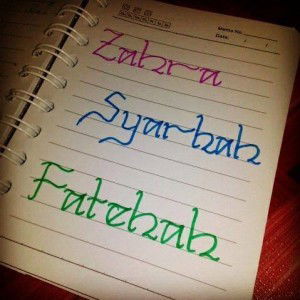 Memo No.
Date / /
Zahra
Syarhah
Fatehah